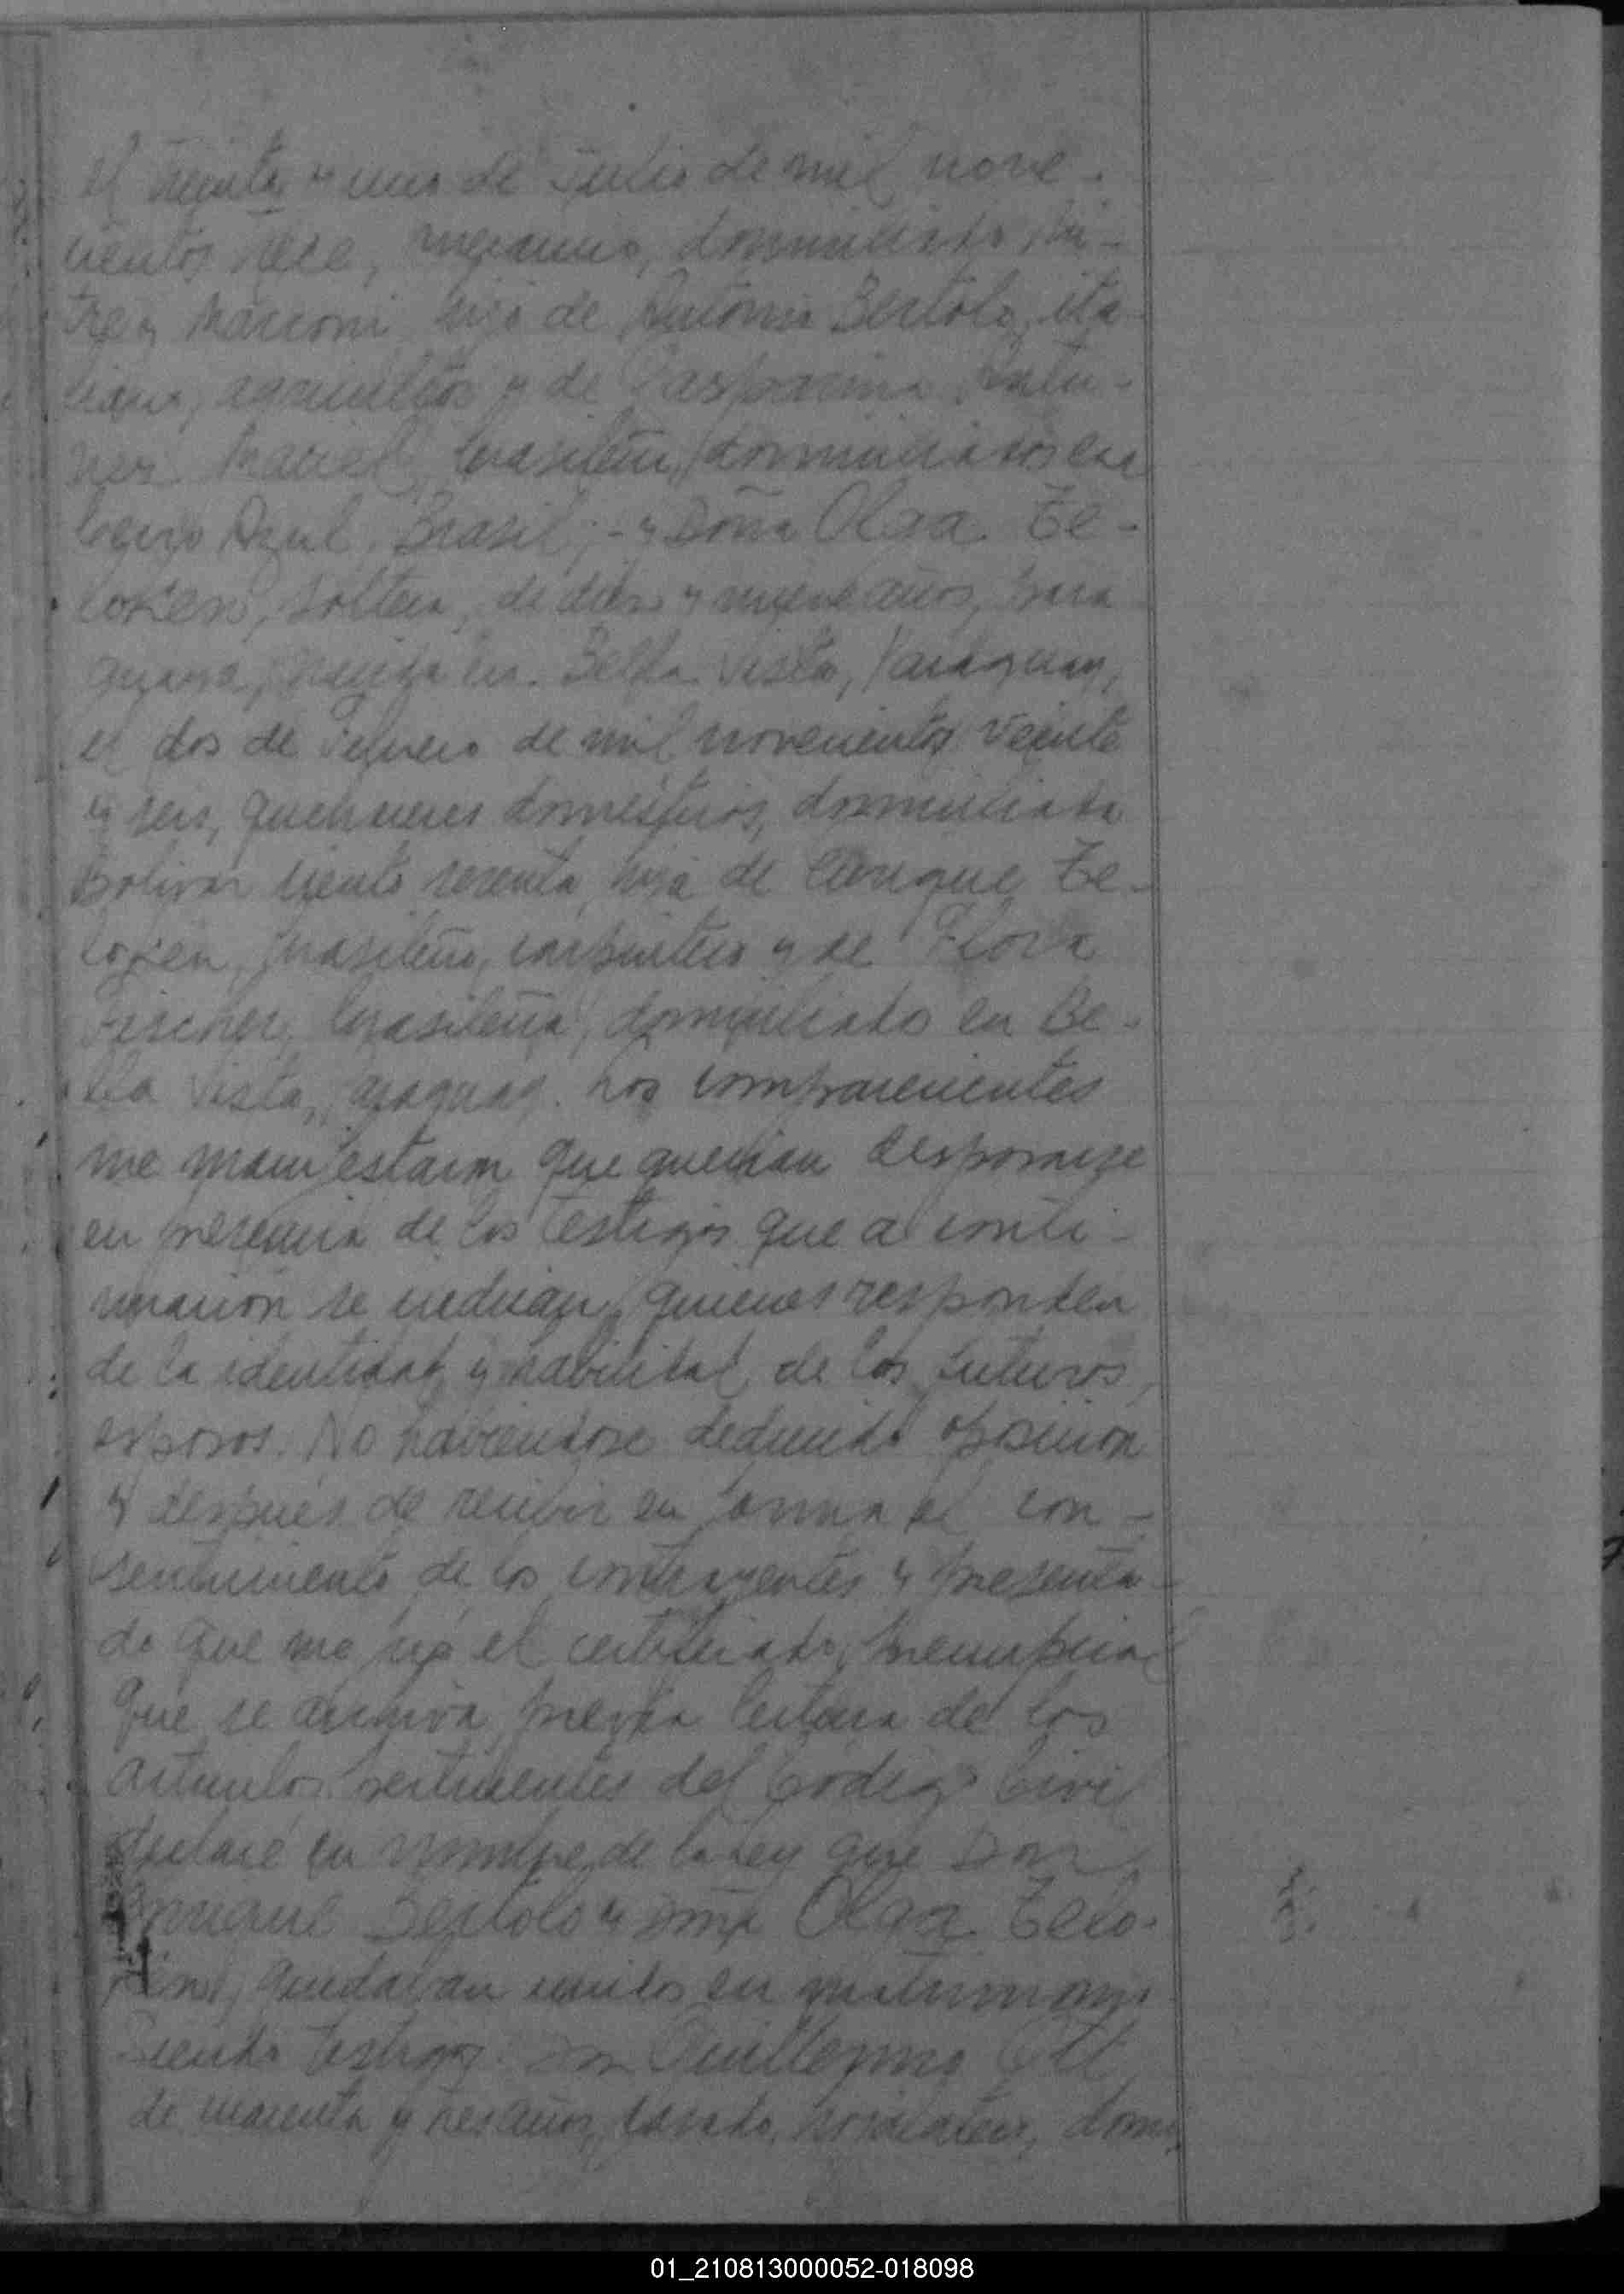 el treinta y uno de Julio de mil nove-
cientos trece, mecanico, domiciliado Mi-
tre y Marconi, hijo de Antonio Bertolo, ita-
liano, agricultor y de Gasparina
Maciel, brasileña, domiciliados en
Cerro Azul, Brasil; - y Doña Olga Te-
loken, soltera, de diez y nueve años, para
guaya, nacida en Bella Vista, Paraguay,
el dos de Febrero de mil novecientos veinte
y seis, quehaceres domésticos, domiciliada
Bolivar ciento sesenta, hija de Enrique Te-
loken, brasileño, carpintero y de Flora
Fischer, brasileña, domiciliado en Be-
lla Vista, Paraguay. Los comparecientes
me manifestaron que querían desposarse
en presencia de los testigos que a conti-
nuación se indican, quienes responden
de la identidad y habilidad de los futuros
esposos. No habiendose deducido oposición
y después de recibir en forma el con-
sentimiento de los contrayentes y presenta-
do que me fué el certificado prenupcial
que se archiva, previa lectura de los
artículos pertinentes del Código Civil
declaré en nombre de la Ley que Don
Enrique Bertolo y Doña Olga Telo-
ken, quedaban unidos en matrimonio
Siendo testigos: Don Guillermo Ott
de cuarenta y tres años, casado, domi-
01_210813000052-018098